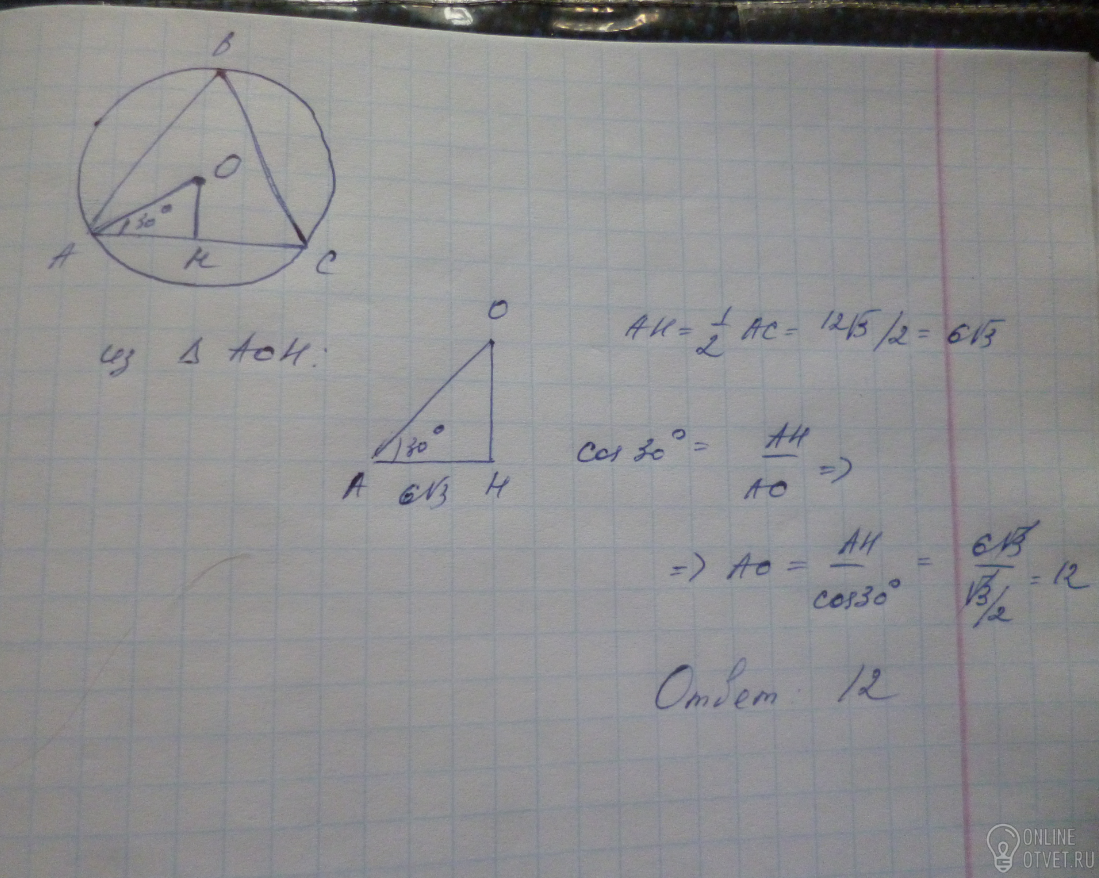 B
O
30°
A
H
C
из Δ AOH:
O
30°
A
6√3
H
AH = 1/2 AC = 12√3/2 = 6√3
cos 30° = AH/AO =>
=> AO = AH/cos30° = 6√3/√3/2 = 12
Ответ 12
ONLINE
OTVET.RU